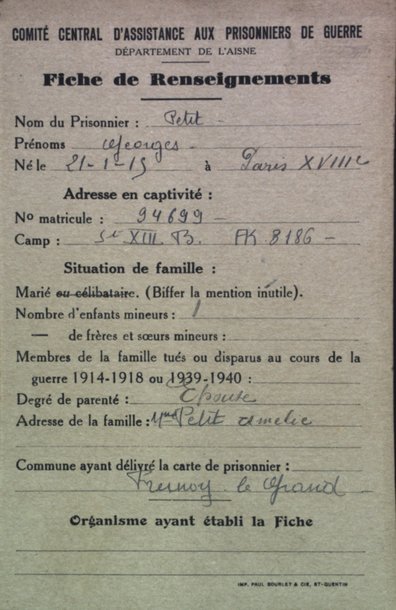 COMITÉ CENTRAL D'ASSISTANCE AUX PRISONNIERS DE GUERRE
DÉPARTEMENT DE L'AISNE
Fiche de Renseignements
Nom du Prisonnier : Petit -
Prénoms Georges -
Né le 21-1-15 à Paris XVIIIe
Adresse en captivité :
No matricule : 94699 -
Camp : XIII B. 8186 -
Situation de famille :
Marié ou célibataire. (Biffer la mention inutile).
Nombre d'enfants mineurs : 1
— de frères et sœurs mineurs :
Membres de la famille tués ou disparus au cours de la
guerre 1914-1918 ou 1939-1940 :
Degré de parenté : Epouse
Adresse de la famille : Mme Petit Amelie
Commune ayant délivré la carte de prisonnier :
Fresnoy le Grand
Organisme ayant établi la Fiche
IMP. PAUL BOURLET & CIE, ST-QUENTIN